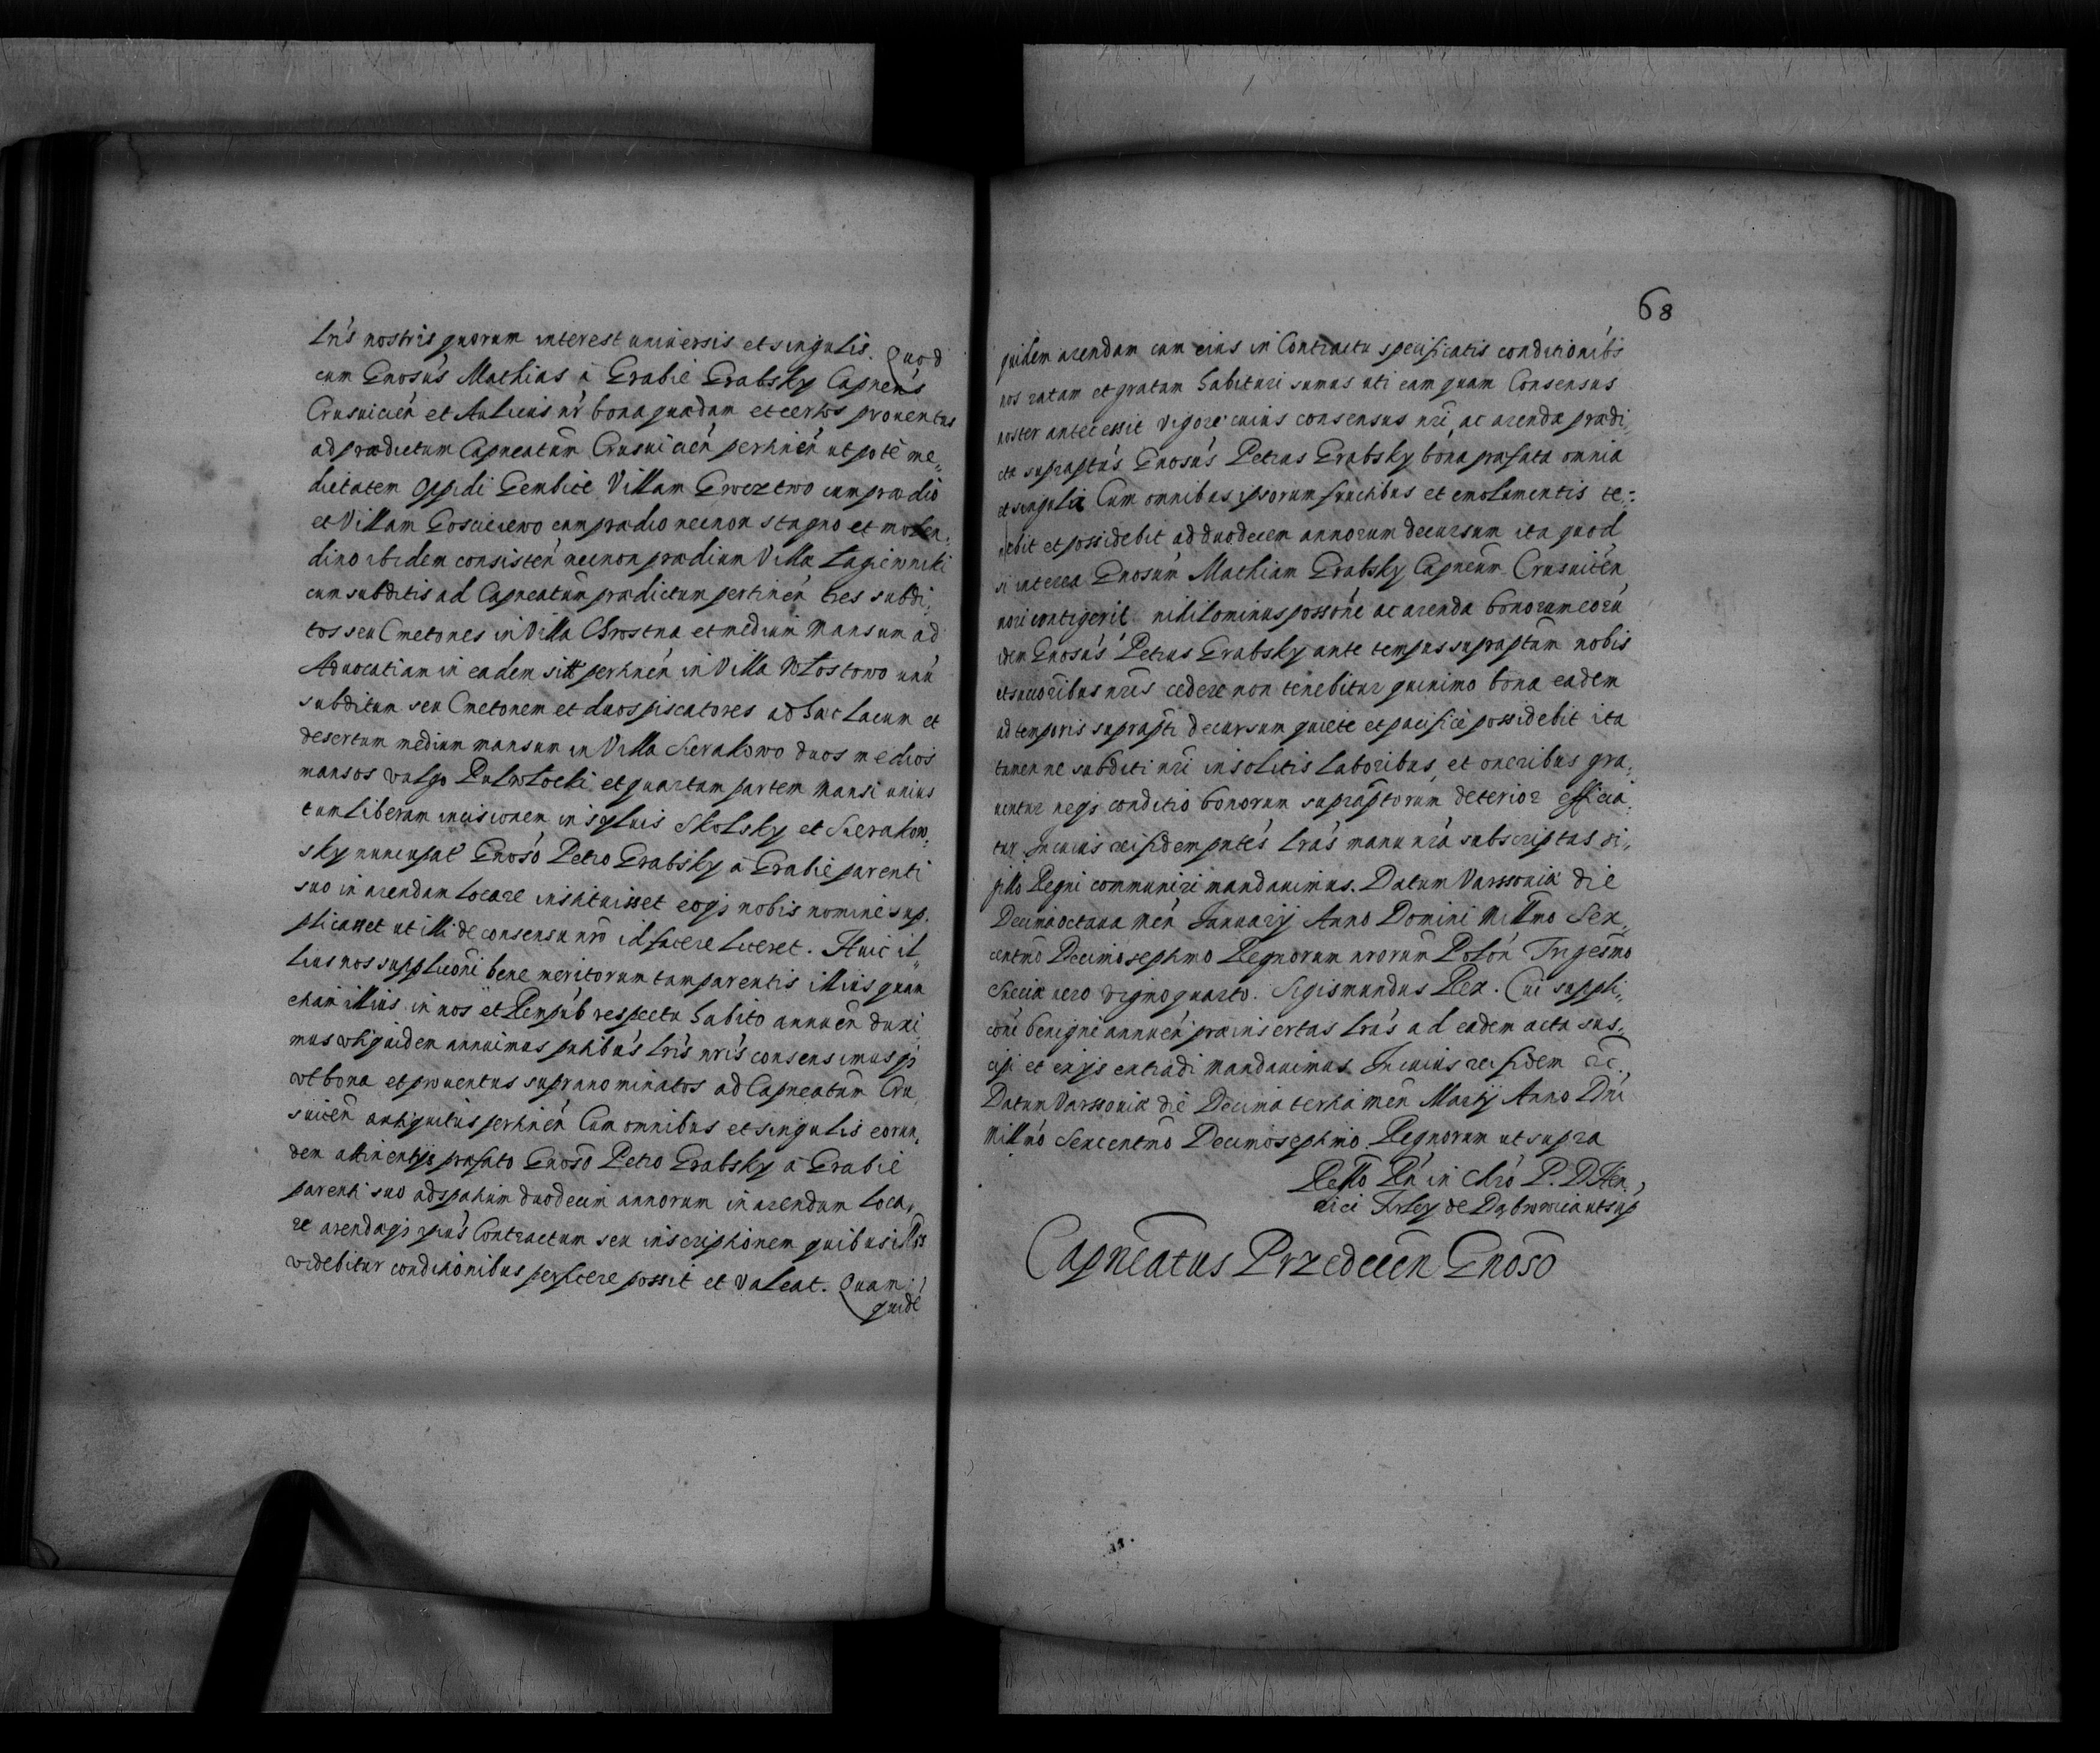 Lrıs nostris quorum interest uniuersis et singulis. Quod
cum Gnosus Mathias à Grabie Grabsky Capneus
Crusuicień et Aulicus nr bona quædam et certos prouentus
ad prædictum Capneatum Crusuicień pertineń utpote me,,
dietatem Oppidi Gembice Villam Gweztwo cum prædio
et Villam Gosciciewo cum prædio necnon stagno et molen,
dino ibidem consisteń necnon prædium Villæ Lagiewniki
cum subditis ad Capneatum prædictum pertineń tres subdi,
tos seu Cmetones in Villa Chrostna et medium mansum ad
Aduocatiam in eadem sitt pertineń in Villa Wlostowo unū
subditum seu Cmetonem et duos piscatores ad hac lacum et
desertum medium mansum in Villa Sierakowo duos medios
mansos vulgo Pulwlocki et quartam partem mansi unius
tum liberam incisionem in syluis Skolsky et Sierakow,
sky nuncupat Gnoso Petro Grabsky à Grabie parenti
suo in arendam locare instituisset eoq3 nobis nomine sup,
plicasset ut illi de consensu nro id facere liceret. Huic il,,
lius nos supplicōni bene meritorum tam parentis illius quam
etiam illius in nos et Rempub respectu habito annueń duxi
mus uti quidem annuimus pntibus lris nris consensimusq3
ut bona et prouentus supranominatos ad Capneatum Cru,
suiceń antiquitus pertineń Cum omnibus et singulis eorun,
dem attinentijs præfato Gnoso Petro Grabsky à Grabie
parenti suo ad spatium duodecim annorum in arendam loca,
re arendaq3 ipius Contractum seu inscriptionem quibus illis
videbitur conditionibus perficere possit et valeat. Quam
quidē
68
quidem arendam cum eius in Contractu specificatis conditionibs
nos ratam et gratam habituri sumus uti eam quam Consensus
noster antecessit vigore cuius consensus nri, ac arendæ prædi,
ctæ supraptus Gnosus Petrus Grabsky bona præfata omnia
et singula Cum omnibus ipsorum fructibus et emolumentis te,:
nebit et possidebit ad duodecem annorum decursum ita quod
si interea Gnosum Mathiam Grabsky Capneum Crusuiceń
mori contigerit nihilominus possone ac arenda bonorum eorū
idem Gnosus Petrus Grabsky ante tempus supraptum nobis
et succoribus nris cedere non tenebitur quinimo bona eadem
ad temporis suprapti decursum quiete et pacifice possidebit ita
tamen ne subditi nri insolitis laboribus, et oneribus gra,
uentur neq3 conditio bonorum supraptorum deterior efficia,
tur. In cuius rei fidem pntes lras manu nra subscriptas si,,
gillo Regni communiri mandauimus. Datum Varssouiæ die
Decima octaua Meń Januarij Anno Domini Millmo Sex,,
centmo Decimo septmo Regnorum nrorum Poloń Trigesmo
Sueciæ uero vigmo quarto. Sigismundus Rex. Cui suppli,,
cōni benigne annueń præinsertas lras ad eadem acta sus,,
cipi et ex ijs extradi mandauimus. In cuius rei fidem &c.
Datum Varssouiæ die Decima tertia meń Martij Anno Dni
Millmo Sexcentmo Decimo septmo Regnorum ut supra
Rello Rń in Chrō P. D. Hen,
rici Firley de Dąbrowica ut sup
Capneatus Przedeceń Gnoso